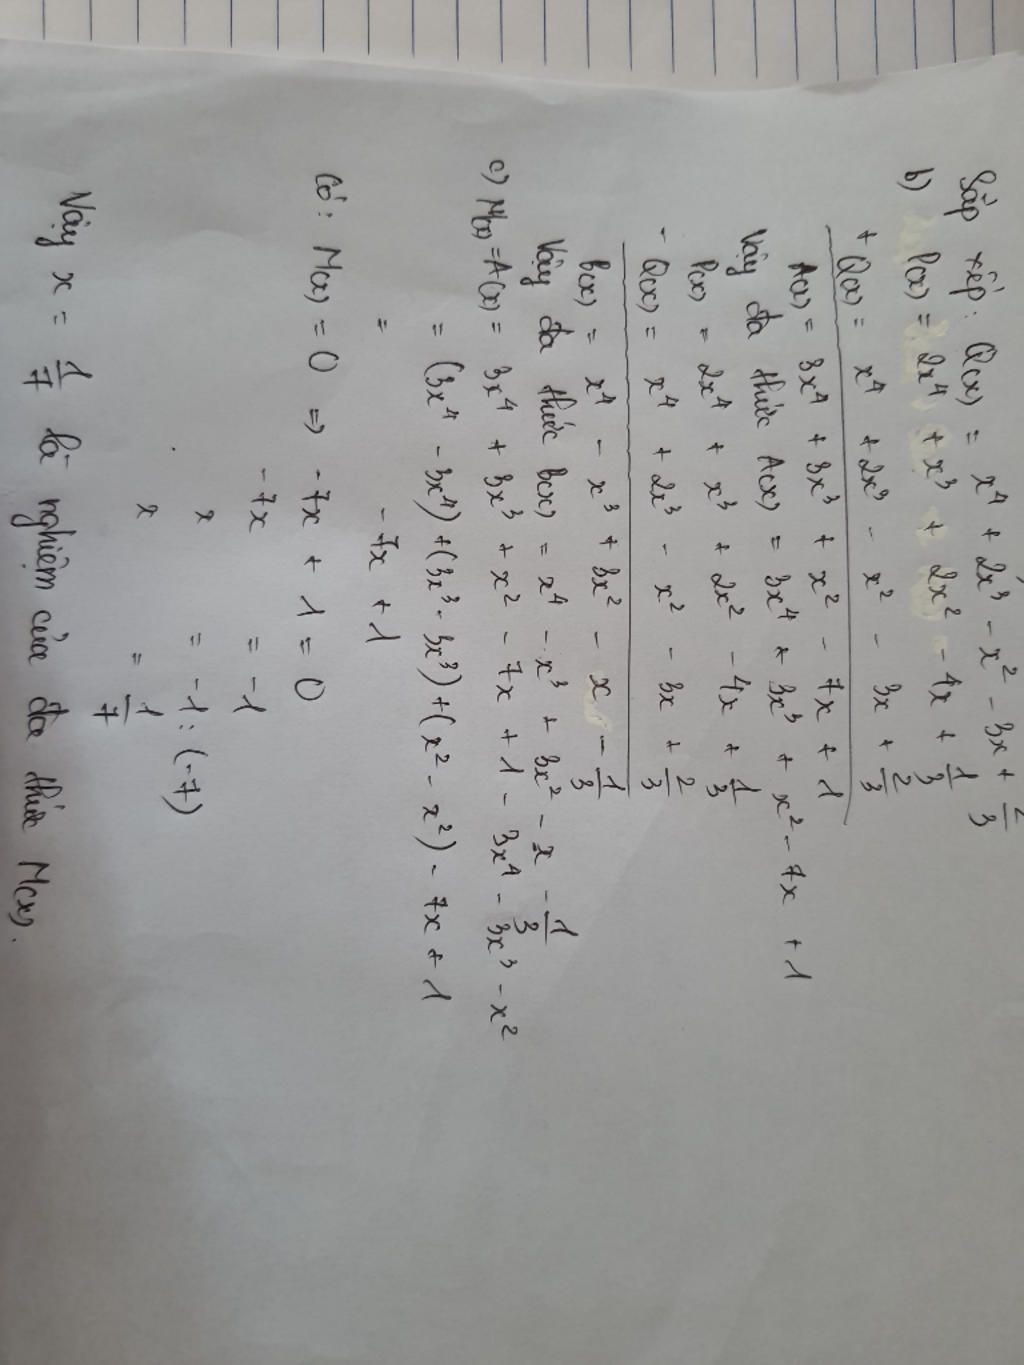 Sắp xếp: Q(x) = x⁴ + 2x³ - x² - 3x + 2/3
b) P(x) = 2x⁴ + x³ + 2x² - 4x + 1/3
+ Q(x) = x⁴ + 2x³ - x² - 3x + 2/3
A(x) = 3x⁴ + 3x³ + x² - 7x + 1
Vậy đa thức A(x) = 3x⁴ + 3x³ + x² - 7x + 1
P(x) = 2x⁴ + x³ + 2x² - 4x + 1/3
- Q(x) = x⁴ + 2x³ - x² - 3x + 2/3
B(x) = x⁴ - x³ + 3x² - x - 1/3
Vậy đa thức B(x) = x⁴ - x³ + 3x² - x - 1/3
c) M(x) = A(x) = 3x⁴ + 3x³ + x² - 7x + 1 - 3x⁴ - 3x³ - x²
= (3x⁴ - 3x⁴) + (3x³ - 3x³) + (x² - x²) - 7x + 1
= -7x + 1
Có: M(x) = 0 => -7x + 1 = 0
-7x = -1
x = -1 : (-7)
x = 1/7
Vậy x = 1/7 là nghiệm của đa thức M(x).